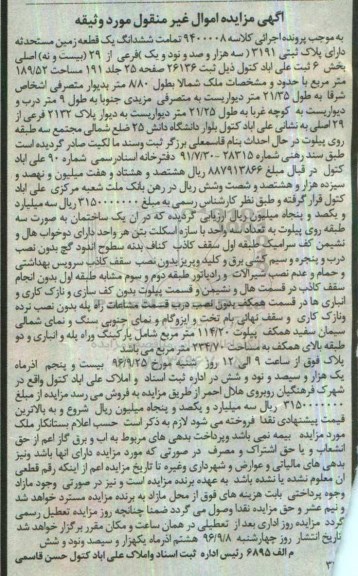 آگهی مزایده اموال غیر منقول مورد وثیقه
به موجب پرونده اجرائی کلاسه ۹۴۰۰۰۰۸ تمامت ششدانگ یک قطعه زمین مستحدثه
دارای پلاک ثبتی ۳۳۹۱ ( سه هزار و صد و نود و یک )فرعی از ۲۹ (بیست و نه) اصلی
بخش ۶ ثبت علی اباد کتول ذیل ثبت ۲۶۱۳۶ صفحه ۲۵ جلد ۱۹۱ مساحت ۱۸۹/۵۲
متر مربع با حدود و مشخصات ملک شمالا بطول ۸/۸۰ متر بدیوار متصرفی اشخاص
شرقا به طول ۲۱/۳۵ متر دیواریست به متصرفی مزیدی جنوبا به طول ۹ متر درب و
دیواریست به کوچه غربا به طول ۲۱/۲۵ متر دیواریست به دیوار پلاک ۲۱۳۲ فرعی از
۲۹ اصلی به نشانی علی اباد کتول بلوار دانشگاه دانش ۲۵ ضلع شمالی مجتمع سه طبقه
روی پیلوت در حال احداث بنام قاسمعلی برزگر ثبت وسند ما لکیت صادر گردیده است
طبق سند رهنی شماره ۲۸۳۱۵-۹۱/۷/۳۰ دفترخانه اسنادرسمی شماره ۹۰ علی اباد
کتول در قبال مبلغ ۸۸۷۹۱۳۸۶۶ ریال هشتصد و هشتاد و هفت میلیون و نهصد و
سیزده هزار و هشتصد و شصت وشش ریال در رهن بانک ملت شعبه مرکزی علی اباد
کتول قرار گرفته و طبق نظر کارشناس رسمی به مبلغ ۳۱۵۰۰۰۰۰۰۰ ریال سه میلیارد
و یکصد و پنجاه میلیون ریال ارزیابی گردیده که در آن یک ساختمان به صورت سه
طبقه روی پیلوت به تعداد سه واحد با سازه اسکلت بتن هر واحد دارای دوخواب هال و
نشیمن کف سرامیک طبقه اول سقف کاذب کناف بدنه سطوح اندود گچ بدون نصب
درب و پنجره و سیم کشی برق و کلید وپریز بدون نصب سقف کاذب سرویس بهداشتی
و حمام و عدم نصب شیرالات و رادیاتور طبقه دوم و سوم مشابه طبقه اول بدون انجام
سقف کاذب در قسمت هال و نشیمن و قسمت پیلوت بدون کف سازی و نازک کاری و
انباری ها در قسمت همکف بدون نصب درب قسمت مشاعات راه پله بدون نصب نرده
ونازک کاری و سقف نهائی بام تخت و ایزوگام و نمای جنوبی سنگ و نمای شمالی
سیمان سفید همکف پیلوت ۱۱۴/۲۰ متر مربع شامل پارکینگ وراه پله و انباری و دو
طبقه بالای همکف به مساحت ۲۳۴/۷۰ متر مربع می باشد
پلاک فوق از ساعت ۹ الی ۱۲ روز شنبه مورخ ۹۶/۹/۲۵ بیست و پنجم اذرماه
یک هزار و سیصد و نود و شش در اداره ثبت اسناد و املاک علی اباد کتول واقع در
شهرک فرهنگیان روبروی هلال احمر از طریق مزایده به فروش می رسد مزایده از مبلغ
۳۱۵۰۰۰۰۰۰۰ ریال سه میلیارد و یکصد و پنجاه میلیون ریال شروع و به بالاترین
قیمت پیشنهادی نقدا فروخته می شود لازم به ذکر است حسب اعلام بستانکار ملک
مورد مزایده بیمه نمی باشد وپرداخت بدهی های مربوط به اب و برق گاز اعم از حق
انشعاب و یا حق اشتراک و مصرف در صورتی که مورد مزایده دارای انها باشد ونیز
بدهی های مالیاتی و عوارض و شهرداری وغیره تا تاریخ مزایده اعم از اینکه رقم قطعی
آن معلوم نشده یا نشده باشد به عهده برنده مزایده است و نیز در صورتی وجود مازاد
وجوه پرداختی بابت هزینه های فوق از محل مازاد به برنده مزایده مسترد خواهد شد
و نیم عشر و حق مزایده نقدا وصول می گردد ضمنا چنانچه روز مزایده تعطیل رسمی
گردد مزایده روز اداری بعد از تعطیلی در همان ساعت و مکان مقرر برگزار خواهد شد
تاریخ انتشار روز چهارشنبه ۹۶/۹/۸ هشتم اذرماه یکهزار و سیصد ونود و شش
م الف ۶۸۹۵ رئیس اداره ثبت اسناد واملاک علی اباد کتول حسن قاسمی